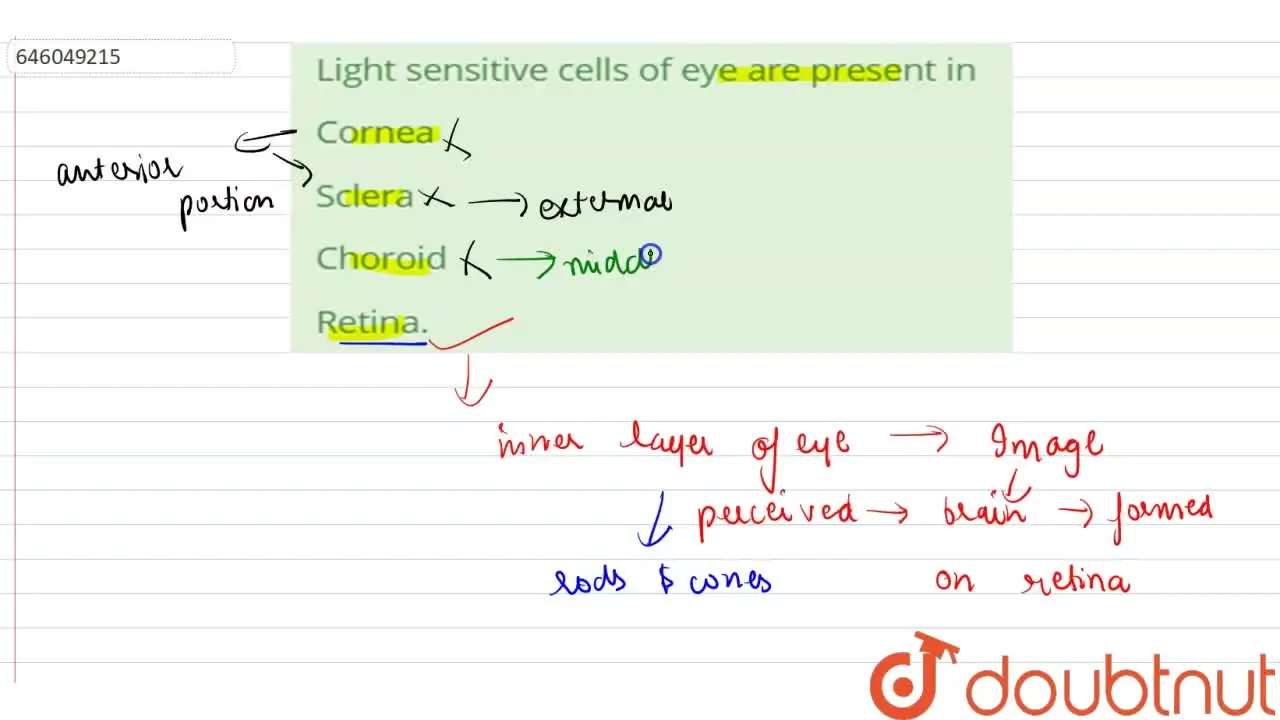 646049215
Light sensitive cells of eye are present in
Cornea
anterior
portion
Sclera → external
Choroid → midd
Retina.
inner layer of eye → Image
perceived → brain → formed
rods & cones
on retina
doubtnut